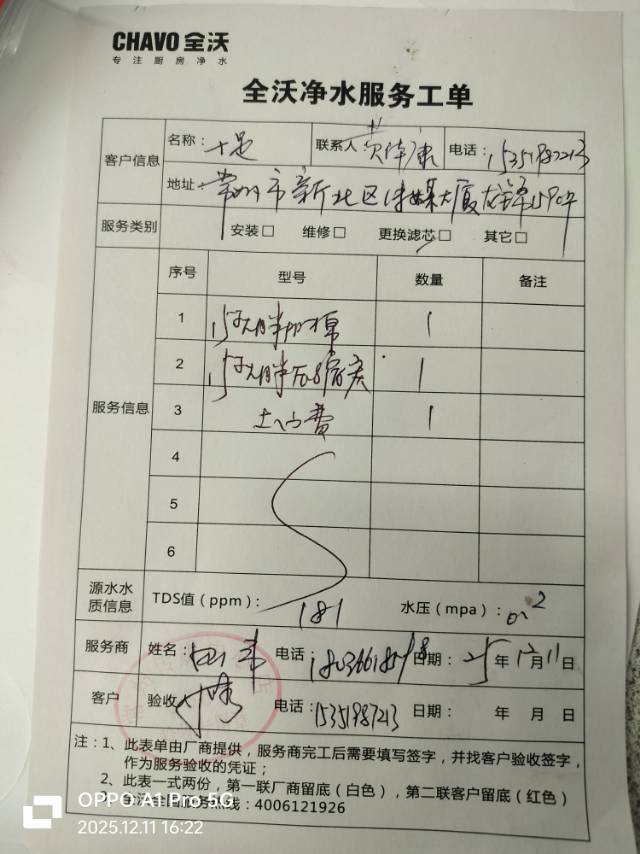 CHAVO 全沃
专注厨房净水
全沃净水服务工单
客户信息
名称：
联系人
电话：15351987213
地址 常州市新北区传媒大厦
服务类别 安装□ 维修□ 更换滤芯□ 其它□
服务信息
序号 型号 数量 备注
1 1
2 1
3 上门费 1
4
5
6
源水水质信息 TDS值（ppm）：181 水压（mpa）：0.2
服务商 姓名： 电话： 日期：25年12月11日
客户 验收人 电话：15351987213 日期： 年 月 日
注：1、此表单由厂商提供，服务商完工后需要填写签字，并找客户验收签字，
作为服务验收的凭证；
2、此表一式两份，第一联厂商留底（白色），第二联客户留底（红色）
3、全沃全国服务热线：4006121926
OPPO A1 Pro 5G
2025.12.11 16:22